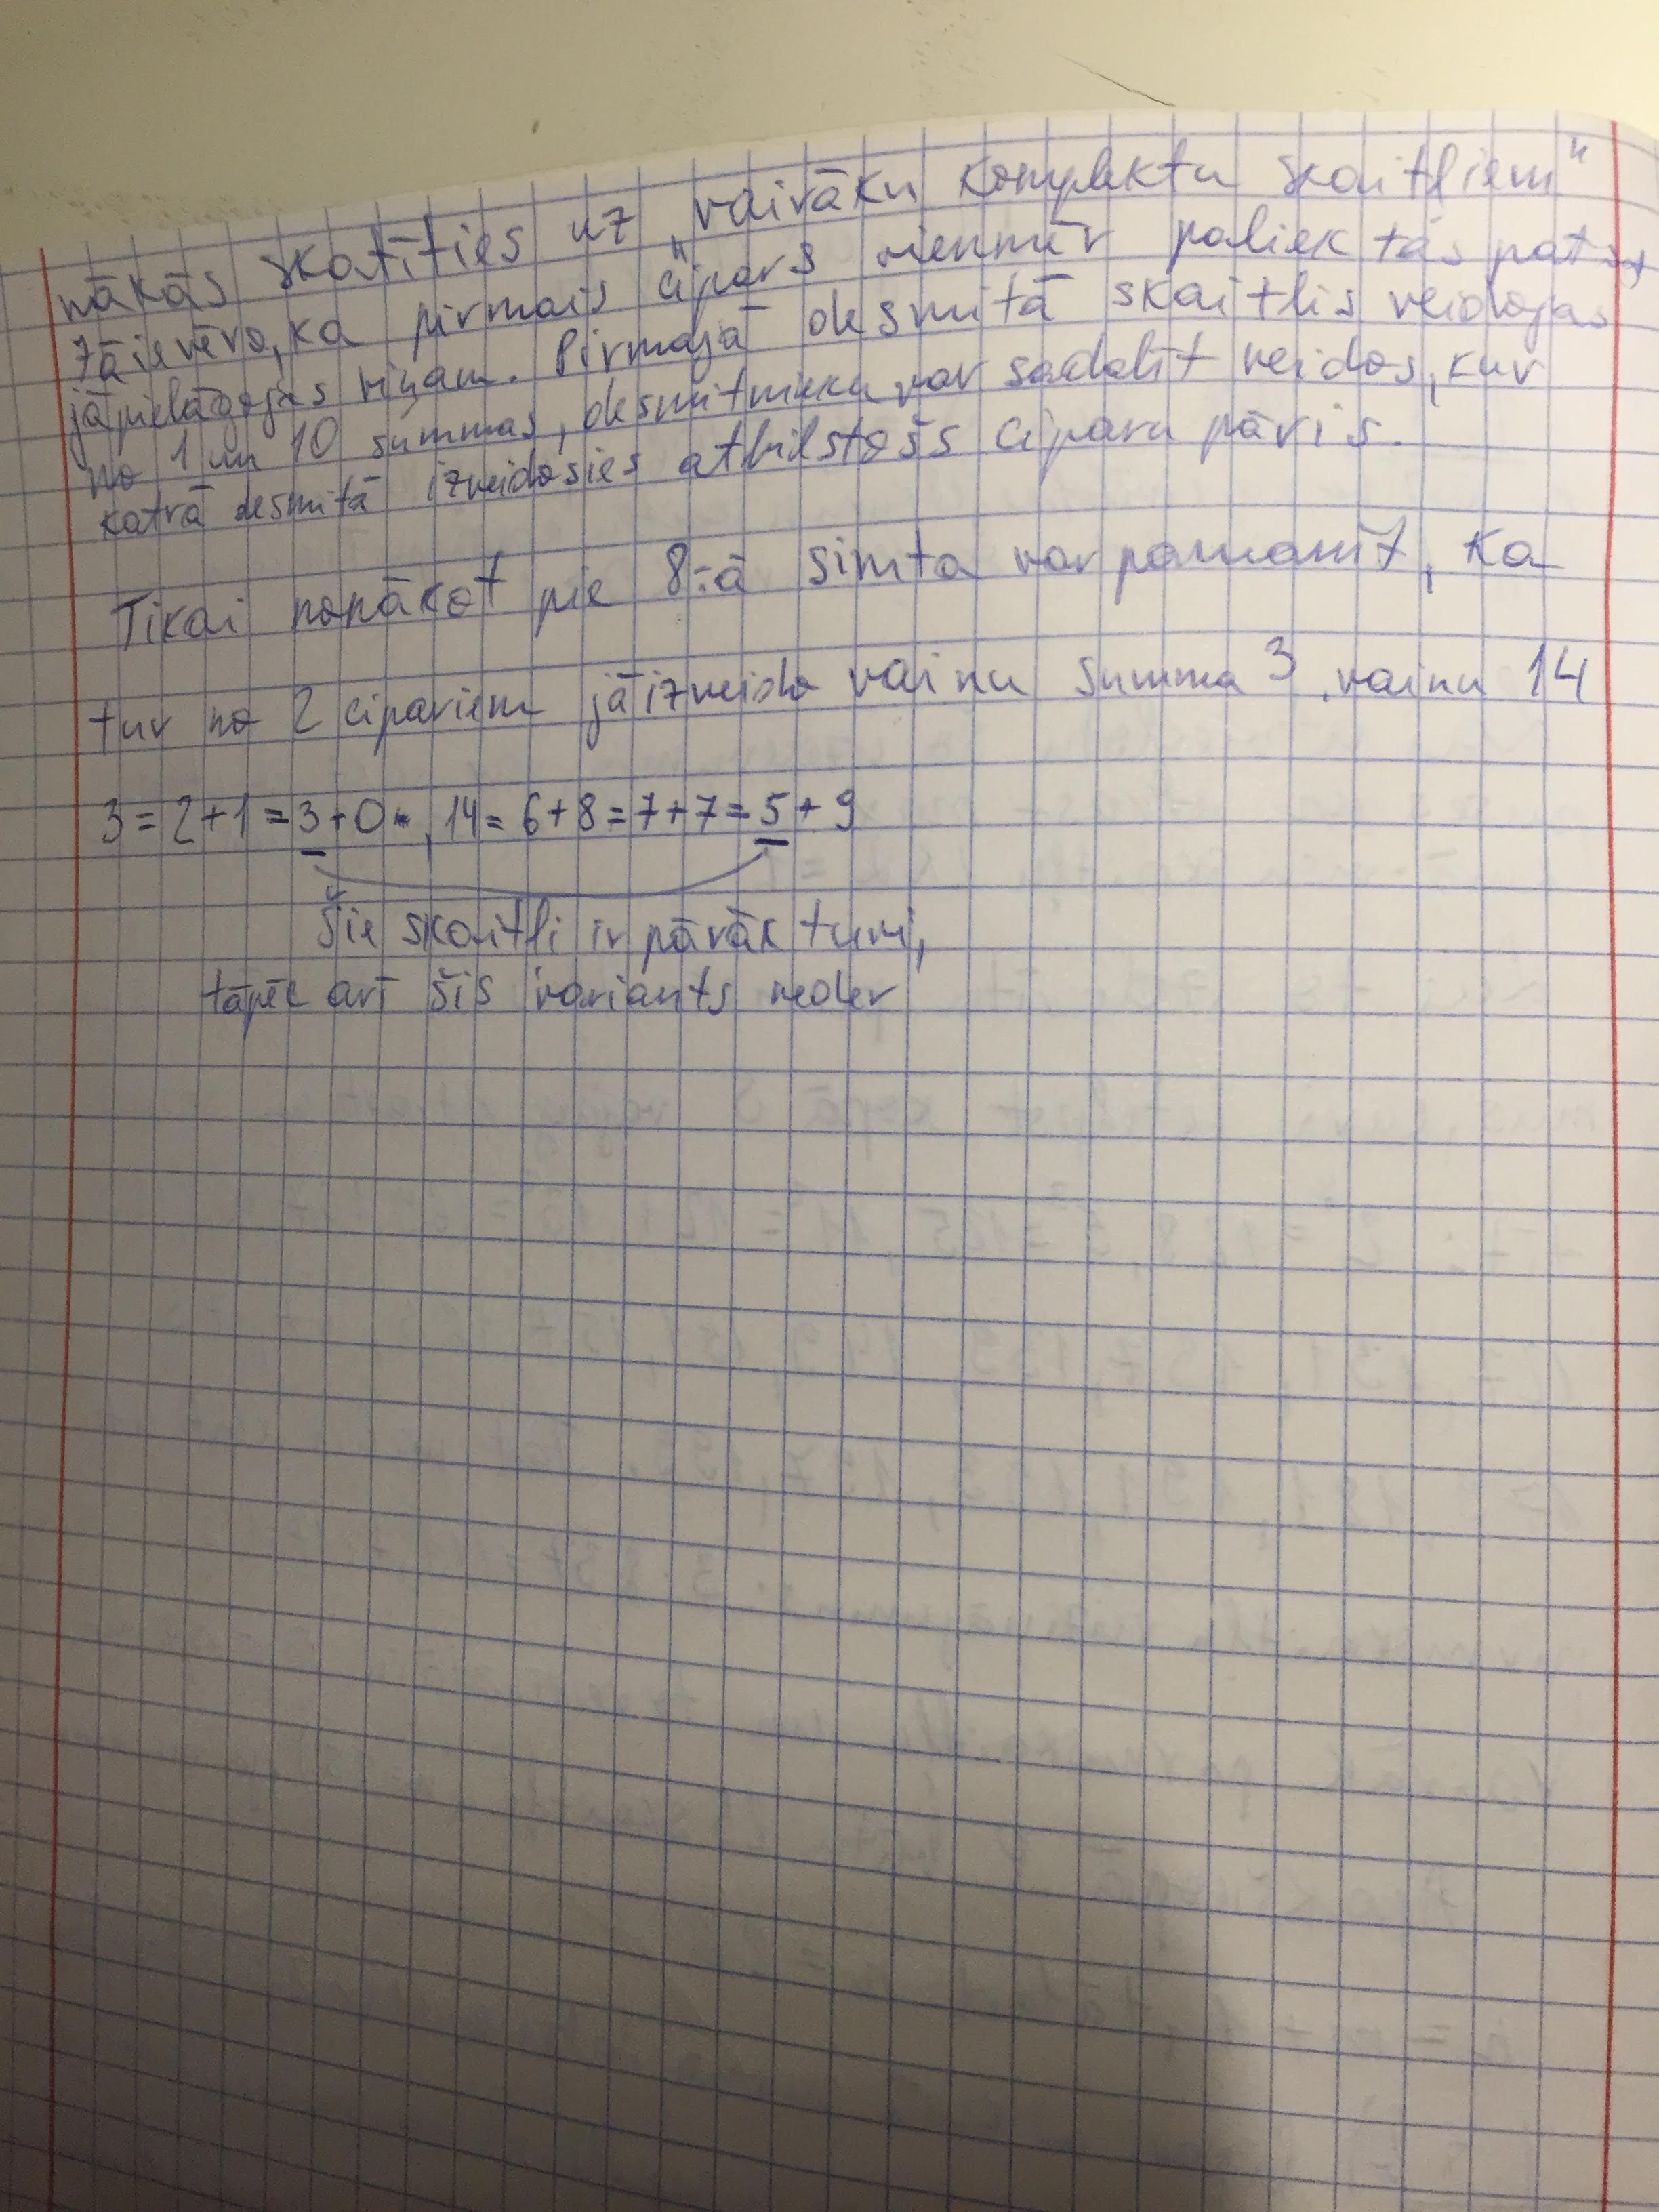 nākās skatīties uz „vairāku komplektu skaitļiem"
Jāievēro, ka pirmais cipars vienmēr paliek tas pats,
jāpielāgojas viņam. Pirmajā desmitā skaitlis veidojas
no 1 un 10 summas, desmitnieku var sadalīt veidos, kur
katrā desmitā izveidosies atbilstošs ciparu pāris.
Tikai nonākot pie 8-ā simta var pamanīt, ka
tur no 2 cipariem jāizveido vai nu summa 3, vai nu 14
3=2+1=3+0, 14=6+8=7+7=5+9
Šie skaitļi ir pārāk tuvi,
tāpēc arī šis variants neder